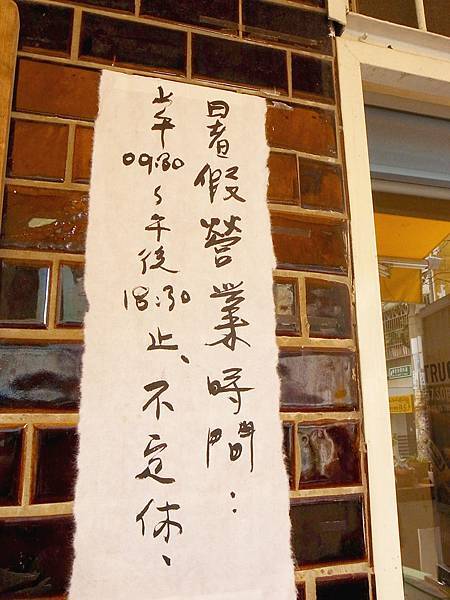 暑假營業時間：
上午09:30～午後18:30止、不定休、
TRU